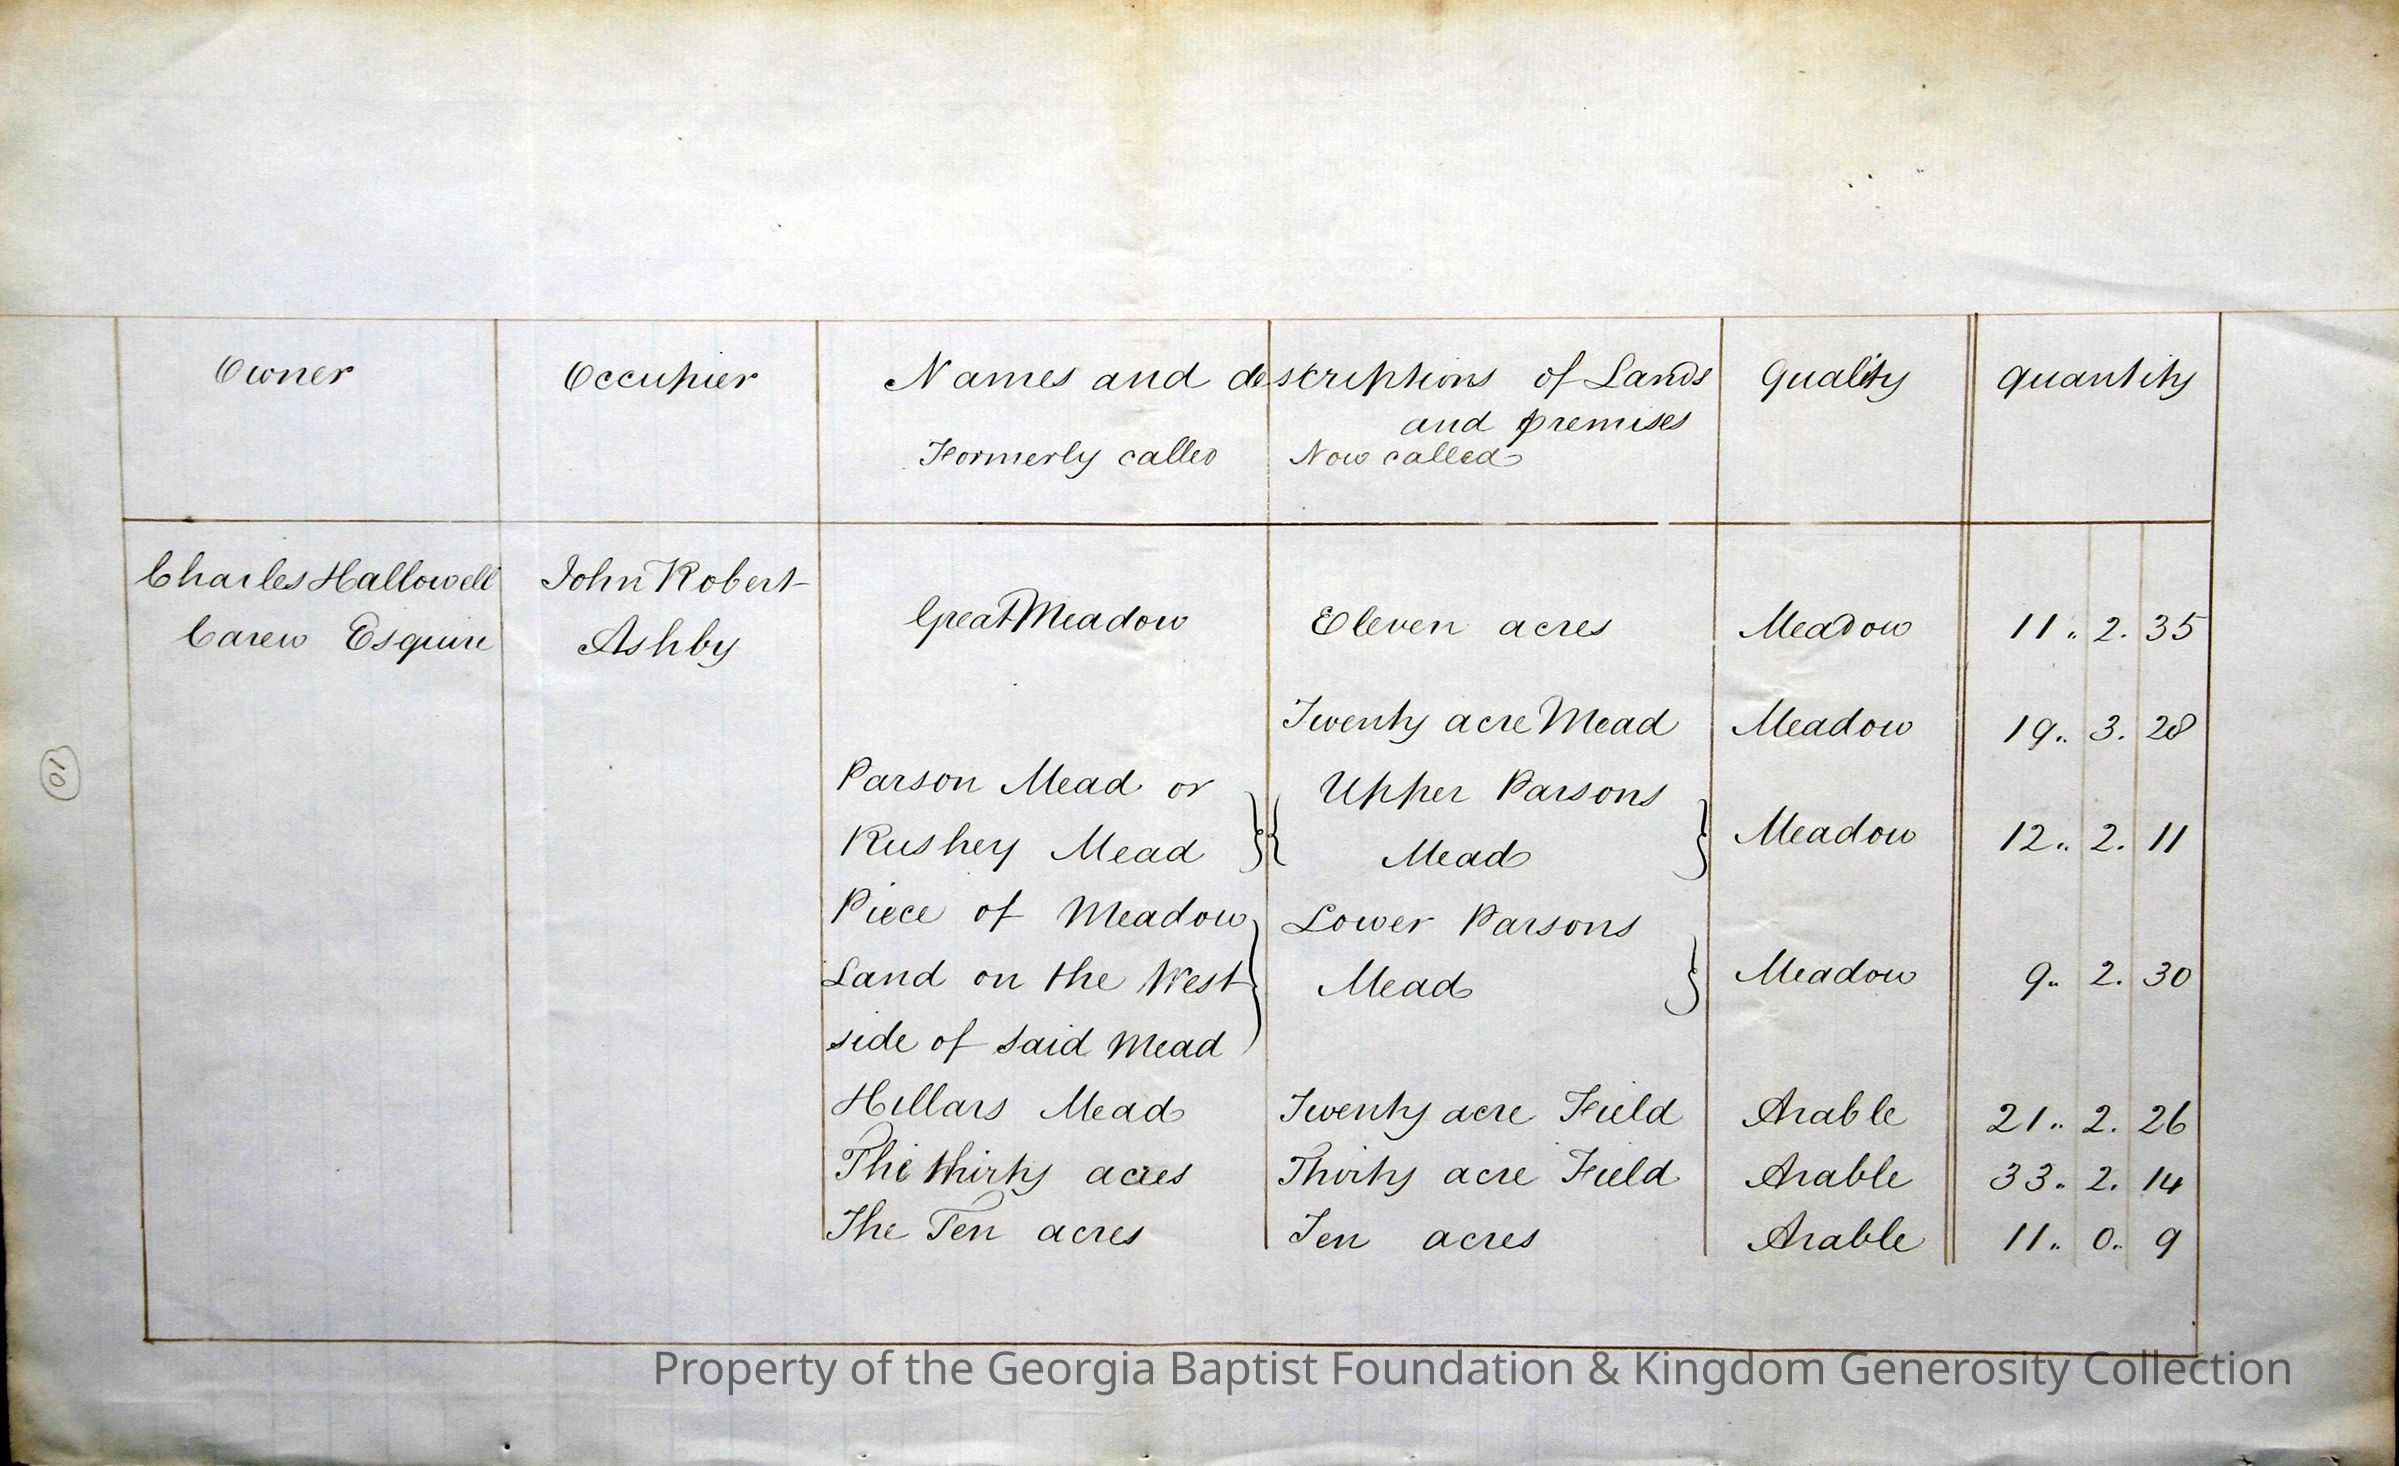 Owner Occupier Names and descriptions of Lands Quality Quantity
and premises
Formerly called Now called
Charles Hallowell John Robert
Carew Esquire Ashby Great Meadow Eleven acres Meadow 11.. 2. 35
Twenty acre Mead Meadow 19.. 3. 28
Parson Mead or Upper Parsons
Rushey Mead } { Mead } Meadow 12.. 2. 11
Piece of Meadow Lower Parsons
Land on the West } Mead } Meadow 9.. 2. 30
side of said Mead
Hillars Mead Twenty acre Field Arable 21.. 2. 26
The thirty acres Thirty acre Field Arable 33.. 2. 14
The Ten acres Ten acres Arable 11.. 0.. 9
10
Property of the Georgia Baptist Foundation & Kingdom Generosity Collection